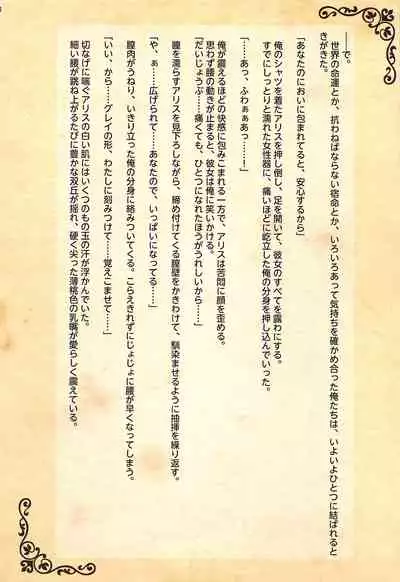 ――で。
世界の命運とか、抗わねばならない宿命とか、いろいろあって気持ちを確かめ合った俺たちは、いよいよひとつに結ばれると
きがきた。
「あなたのにおいに包まれてると、安心するから」
俺のシャツを着たアリスを押し倒し、足を開いて、彼女のすべてを露わにする。
すでにしっとりと濡れた女性器に、痛いほどに屹立した俺の分身を押し込んでいった。
「……あっ、ふわぁぁあっ……！」
俺が震えるほどの快感に包みこまれる一方で、アリスは苦悶に顔を歪める。
思わず腰の動きが止まると、彼女は俺に笑いかける。
「だいじょうぶ……痛くても、ひとつになれたほうがうれしいから……」
瞳を濡らすアリスを見下ろしながら、締め付けてくる膣壁をかきわけて、馴染ませるように抽挿を繰り返す。
「や、ぁ……広げられて……あなたので、いっぱいになってる……」
膣肉がうねり、いきり立った俺の分身に絡みついてくる。こらえきれずにじょじょに腰が早くなってしまう。
「いい、から……グレイの形、わたしに刻みつけて……覚えこませて……」
切なげに喘ぐアリスの白い肌にはいくつもの玉の汗が浮かんでいた。
細い腰が跳ね上がるたびに豊かな双丘が揺れ、硬く尖った薄桃色の乳嘴が愛らしく震えている。